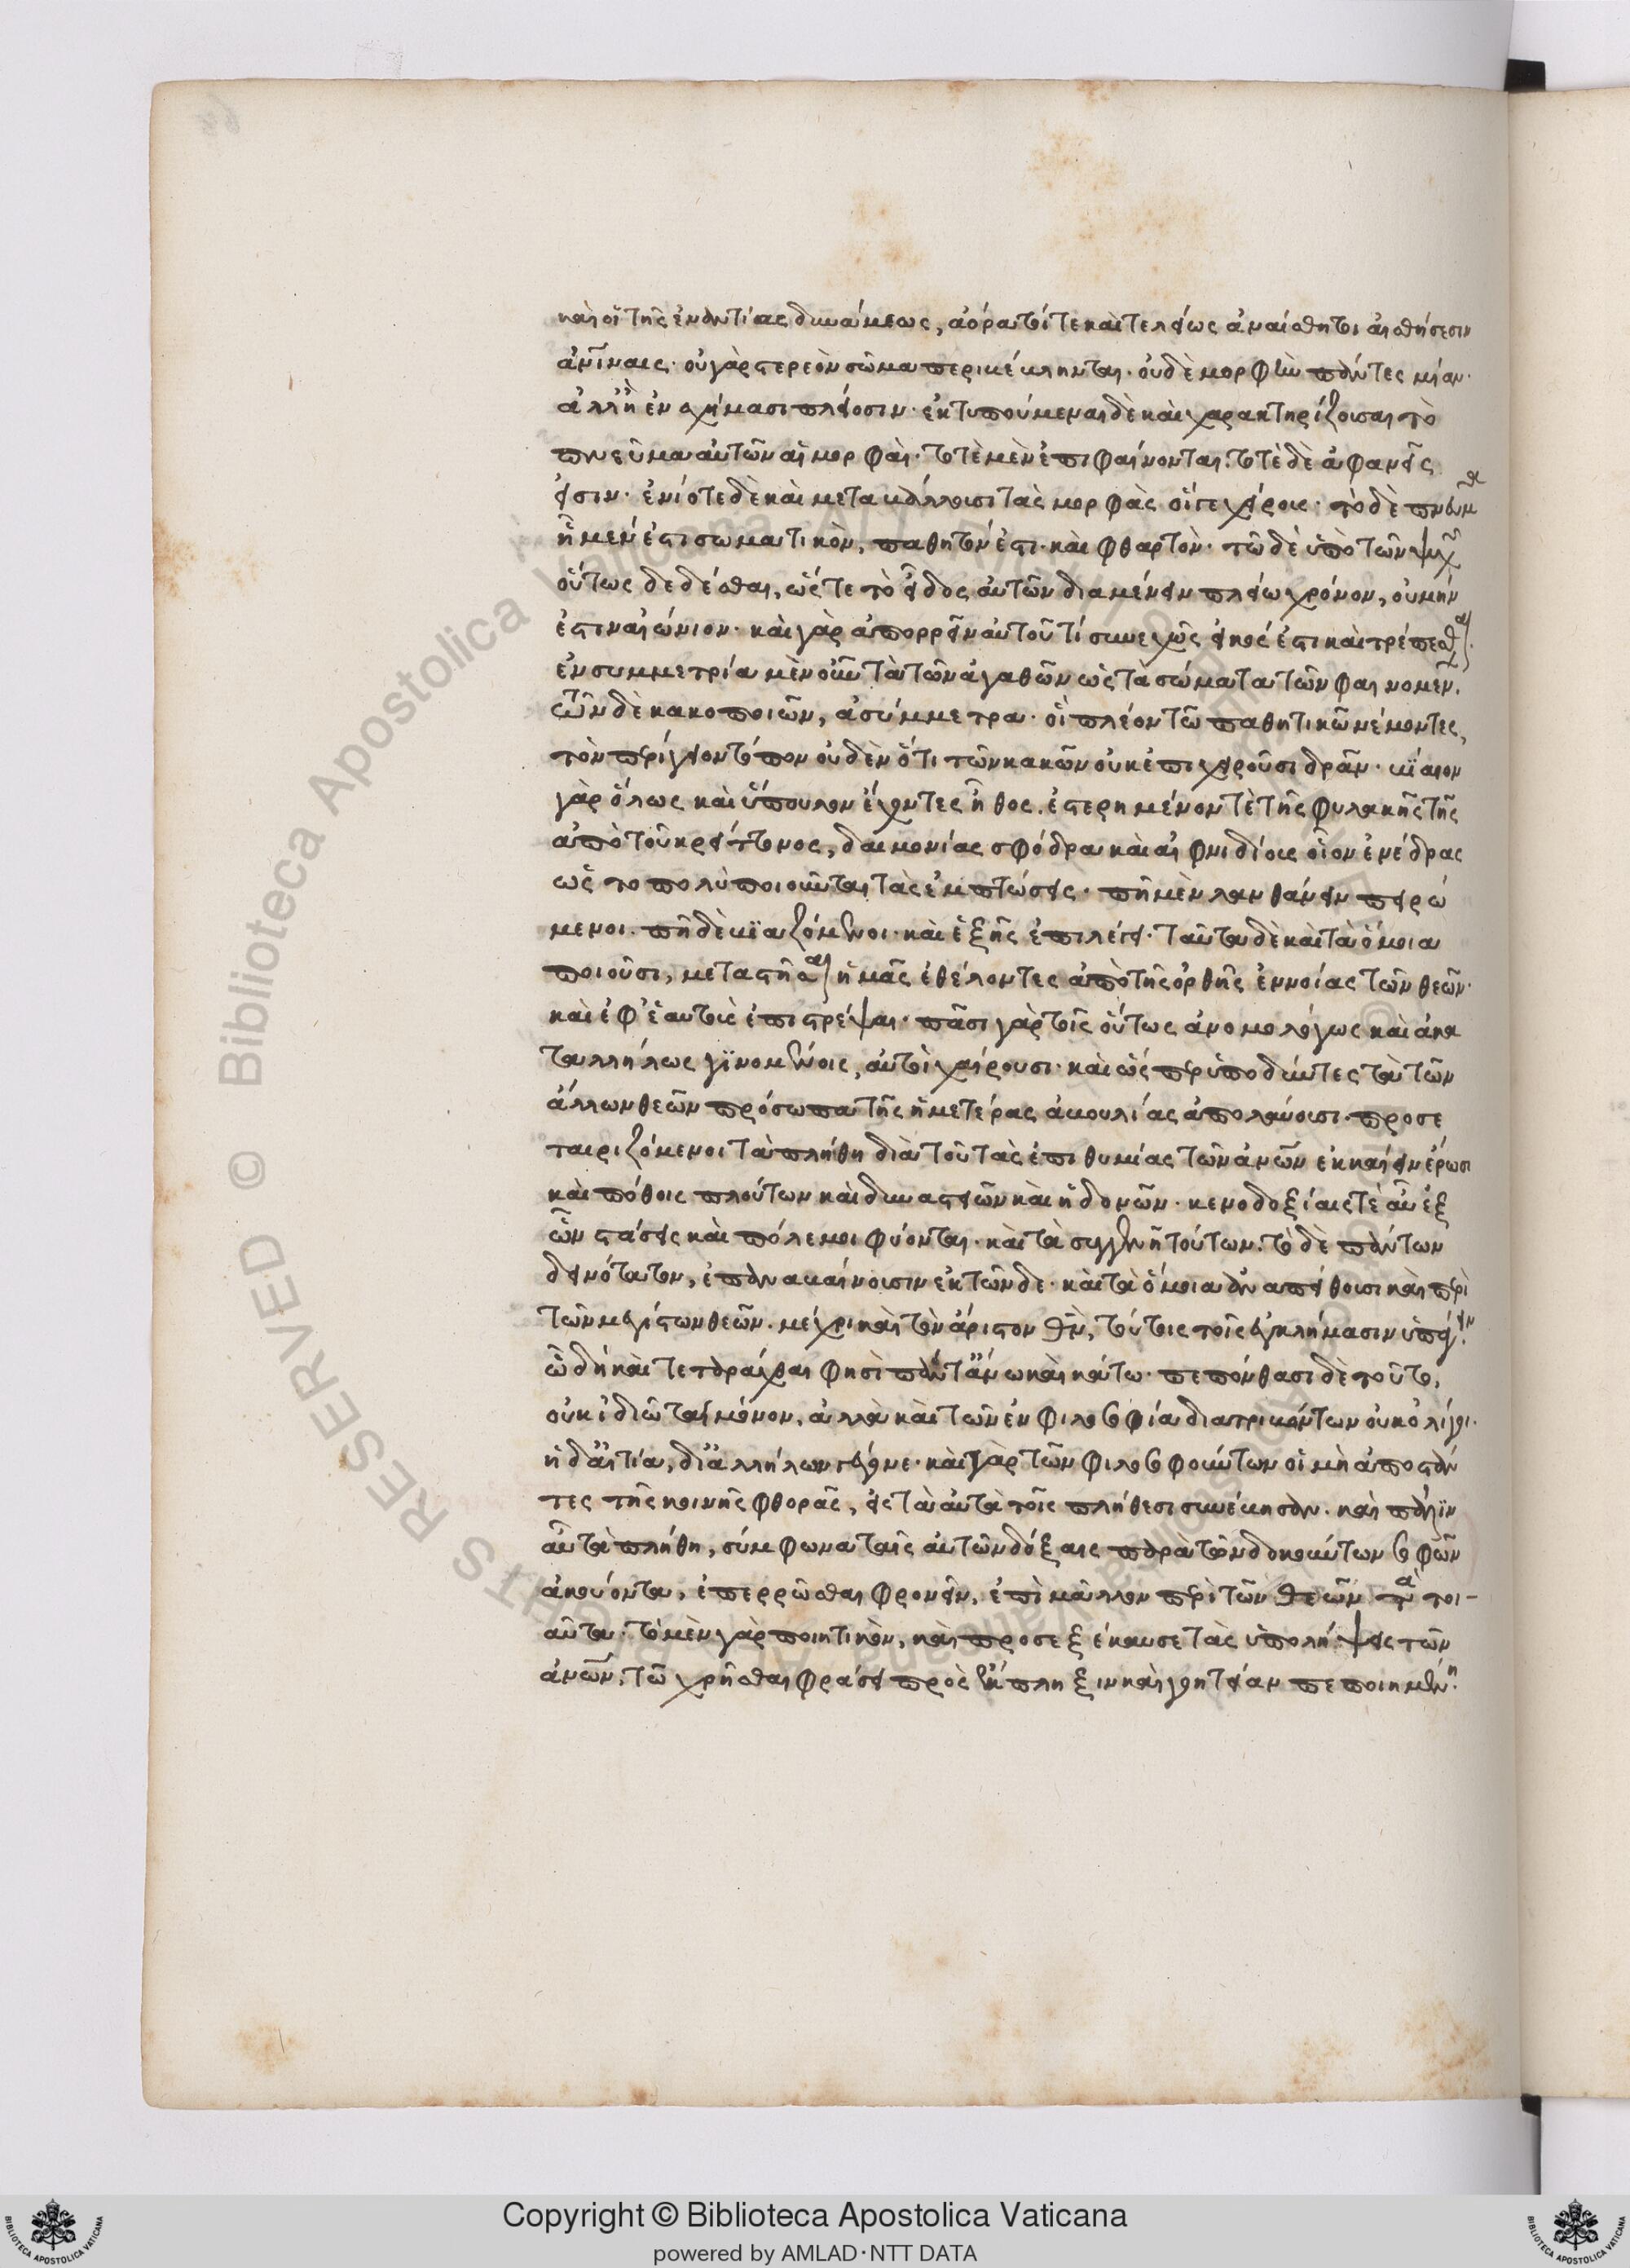 καὶ οἱ τῆς ἐναντίας δυνάμεως, ἀόρατοί τε καὶ τελείως ἀναίσθητοι αἰσθήσεσιν
ἀνίναις· οὐ γὰρ στερεὸν σῶμα περικέκληνται· οὐδὲ μορφὴν πάντες μίαν·
ἀλλ' ἐν σχήμασι πλείοσιν· ἐκτυπούμεναι δὲ καὶ χαρακτηρίζουσαι τὸ
πνεῦμα αὐτῶν αἱ μορφαὶ· τοτὲ μὲν ἐπιφαίνονται· τοτὲ δὲ ἀφανεῖς
εἰσιν· ἐνίοτε δὲ καὶ μεταβάλλουσι τὰς μορφὰς οἵγε χείρους· τὸ δὲ πνεῦμα
ἧ μέν ἐστι σωματικὸν, παθητόν ἐστι· καὶ φθαρτὸν· τῶ δὲ ὑπὸ τῶν ψυχῶν
οὕτως δεδέσθαι, ὥστε τὸ εἶδος αὐτῶν διαμένειν πλείω χρόνον, οὐ μήν
ἐστιν αἰώνιον· καὶ γὰρ ἀπορρεῖν αὐτοῦ τί συνεχῶς εἰκός ἐστι καὶ τρέπεσθαι.
ἐν συμμετρία μὲν οὖν τὰ τῶν ἀγαθῶν ὡς τὰ σώματα τῶν φαινομέν.
τῶν δὲ κακοποιῶν, ἀσύμμετρα· οἳ πλέον τῶ παθητικῶ νέμοντες,
τὸν πρίγειον τόπον οὐδὲν ὅτι τῶν κακῶν οὐκ ἐπιχειροῦσι δρᾶν· βίαιον
γὰρ ὅλως καὶ ὕπουλον ἔχοντες ἦθος. ἐστερημένον τὲ τῆς φυλακῆς τῆς
ἀπὸ τοῦ κρείττονος, δαιμονίας σφόδρα καὶ αἰφνιδίους οἷον ἐνέδρας
ὡς τοπολὺ ποιοῦνται τὰς ἐμπτώσεις· πῆ μὲν λανθάνειν πειρώ
μενοι. πῆ δὲ βιαζόμενοι· καὶ ἑξῆς ἐπιλέγει· ταῦτα δὲ καὶ τὰ ὅμοια
ποιοῦσι, μεταστῆσαι ἡμᾶς ἐθέλοντες ἀπὸ τῆς ὀρθῆς ἐννοίας τῶν θεῶν·
καὶ ἐφ' ἑαυτοὺς ἐπιστρέψαι· πᾶσι γὰρ τοῖς οὕτως ἀνομολόγως καὶ ἀκα
ταλλήλως γινομένοις, αὐτοὶ χαίρουσι· καὶ ὥσπερ ὑποδύντες τὰ τῶν
ἄλλων θεῶν πρόσωπα τῆς ἡμετέρας ἀβουλίας ἀπολαύουσι· προσε
ταιριζόμενοι τὰ πλήθη διὰ τοῦ τὰς ἐπιθυμίας τῶν ἀνῶν ἐκκαίειν ἔρωσι
καὶ πόθοις πλούτων καὶ δυναστειῶν καὶ ἡδονῶν· κενοδοξίαις τὲ αὖ ἐξ
ὧν στάσεις καὶ πόλεμοι φύονται· καὶ τὰ συγγενῆ τούτων. τὸ δὲ πάντων
δεινότατον, ἐπαναβαίνουσιν ἐκ τῶνδε· καὶ τὰ ὅμοια ἀναπείθουσι καὶ περὶ
τῶν μεγίστων θεῶν. μέχρι καὶ τὸν ἄριστον θν, τούτοις τοῖς ἐγκλήμασιν ὑπάγειν.
ὧ δή καὶ τεταράχθαι φησὶ πάντ' ἄνω καὶ κάτω· πεπόνθασι δὲ τοῦτο,
οὐκ ἰδιῶται μόνον, ἀλλὰ καὶ τῶν ἐν φιλοσοφία διατριβόντων οὐκ ὀλίγοι.
ἡ δ' αἰτία, δι' ἀλλήλων γέγονε· καὶ γὰρ τῶν φιλοσοφούντων οἱ μὴ ἀποστάν
τες τῆς κοινῆς φθορᾶς, εἰς τὰ αὐτὰ τοῖς πλήθεσι συνέβησαν. καὶ πάλϊν
αὖ τὰ πλήθη, σύμφωνα ταῖς αὐτῶν δόξαις παρὰ τῶν δοκούντων σοφῶν
ἀκούοντα, ἐπερρώσθαι φρονεῖν, ἐπὶ μᾶλλον περὶ τῶν θεῶν τὰ τοι-
αῦτα· τὸ μὲν γὰρ ποιητικὸν, καὶ προσεξέκαυσε τὰς ὑπολήψεις τῶν
ἀνῶν, τῶ χρῆσθαι φράσει πρὸς ἔκπληξιν καὶ γοητείαν πεποιημένη.
Copyright © Biblioteca Apostolica Vaticana
powered by AMLAD·NTT DATA